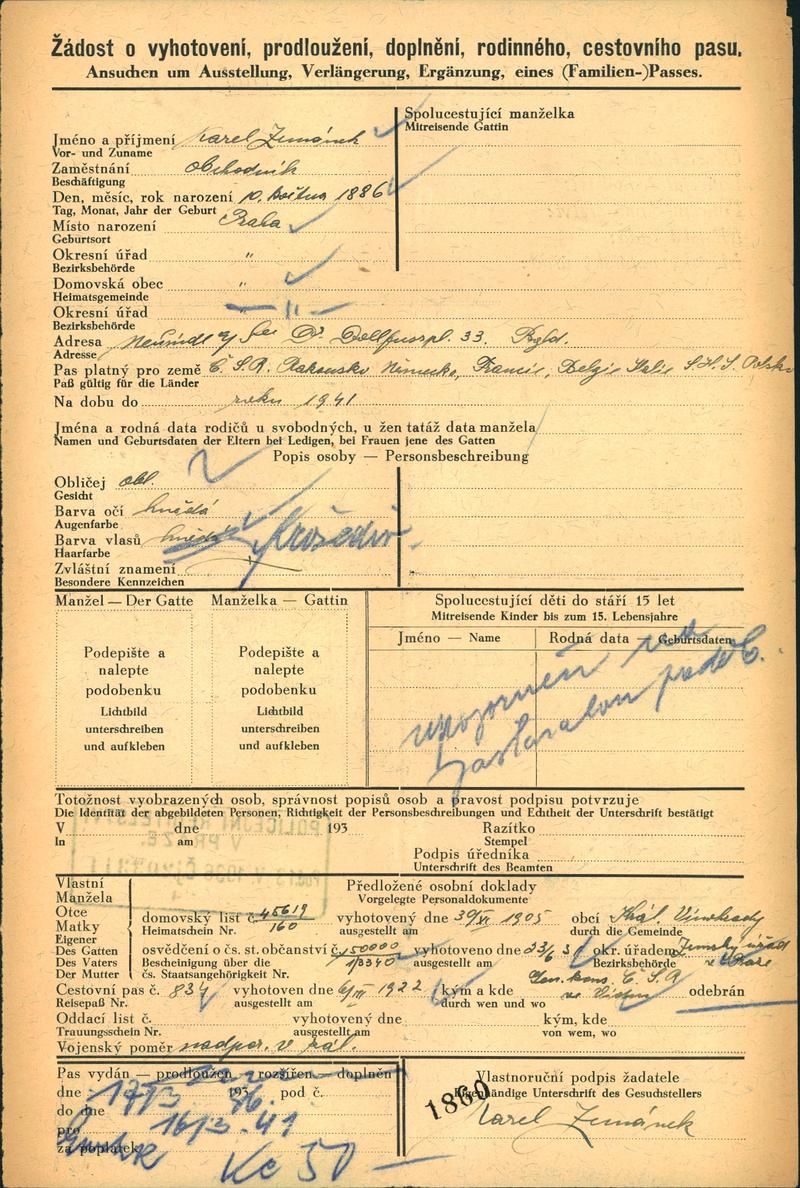 Žádost o vyhotovení, prodloužení, doplnění, rodinného, cestovního pasu.
Ansuchen um Ausstellung, Verlängerung, Ergänzung, eines (Familien-)Passes.
Spolucestující manželka
Mitreisende Gattin
Jméno a příjmení Karel Zemánek
Vor- und Zuname
Zaměstnání obchodník
Beschäftigung
Den, měsíc, rok narození 10. května 1886
Tag, Monat, Jahr der Geburt
Místo narození Praha
Geburtsort
Okresní úřad "
Bezirksbehörde
Domovská obec "
Heimatsgemeinde
Okresní úřad — " —
Bezirksbehörde
Adresa Neusiedl a/See Dr. Dollfusspl. 33. Bgld.
Adresse
Pas platný pro země Č. S. R. Rakousko Německo, Francie, Belgie Italie S.H.S. Polsko
Paß gültig für die Länder
Na dobu do roku 1941
Jména a rodná data rodičů u svobodných, u žen tatáž data manžela
Namen und Geburtsdaten der Eltern bei Ledigen, bei Frauen jene des Gatten
Popis osoby — Personsbeschreibung
Obličej obl.
Gesicht
Barva očí hnědá
Augenfarbe
Barva vlasů hnědá
Haarfarbe
Zvláštní znamení
Besondere Kennzeichen
Manžel — Der Gatte Manželka — Gattin
Spolucestující děti do stáří 15 let
Mitreisende Kinder bis zum 15. Lebensjahre
Jméno — Name Rodná data — Geburtsdaten
Podepište a nalepte podobenku
Lichtbild unterschreiben und aufkleben
Podepište a nalepte podobenku
Lichtbild unterschreiben und aufkleben
upozorněn na
zastaralou podob.
Totožnost vyobrazených osob, správnost popisů osob a pravost podpisu potvrzuje
Die Identität der abgebildeten Personen, Richtigkeit der Personsbeschreibungen und Echtheit der Unterschrift bestätigt
V dne 193 Razítko
In am Stempel
Podpis úředníka
Unterschrift des Beamten
Vlastní
Manžela
Otce
Matky
Eigener
Des Gatten
Des Vaters
Der Mutter
Předložené osobní doklady
Vorgelegte Personaldokumente
domovský list č. 45619/160 vyhotovený dne 30/VI 1905 obcí Král. Vinohrady
Heimatschein Nr. ausgestellt am durch die Gemeinde
osvědčení o čs. st. občanství č. 50000/13340 vyhotoveno dne 23/6 31 okr. úřadem Zemský úřad v Praze
Bescheinigung über die ausgestellt am Bezirksbehörde
čs. Staatsangehörigkeit Nr.
Cestovní pas č. 834 vyhotoven dne 6/III 1922 kým a kde Gen. kons. Č. S. R. ve Vídni odebrán
Reisepaß Nr. ausgestellt am durch wen und wo
Oddací list č. vyhotovený dne kým, kde
Trauungsschein Nr. ausgestellt am von wem, wo
Vojenský poměr nadpor. v zál.
Pas vydán — prodloužen — rozšířen — doplněn
dne 17/3 1936. pod č.
do dne 16/3 - 41
pro
za poplatek Kč 50 —
1860
Vlastnoruční podpis žadatele
Eigenhändige Unterschrift des Gesuchstellers
Karel Zemánek